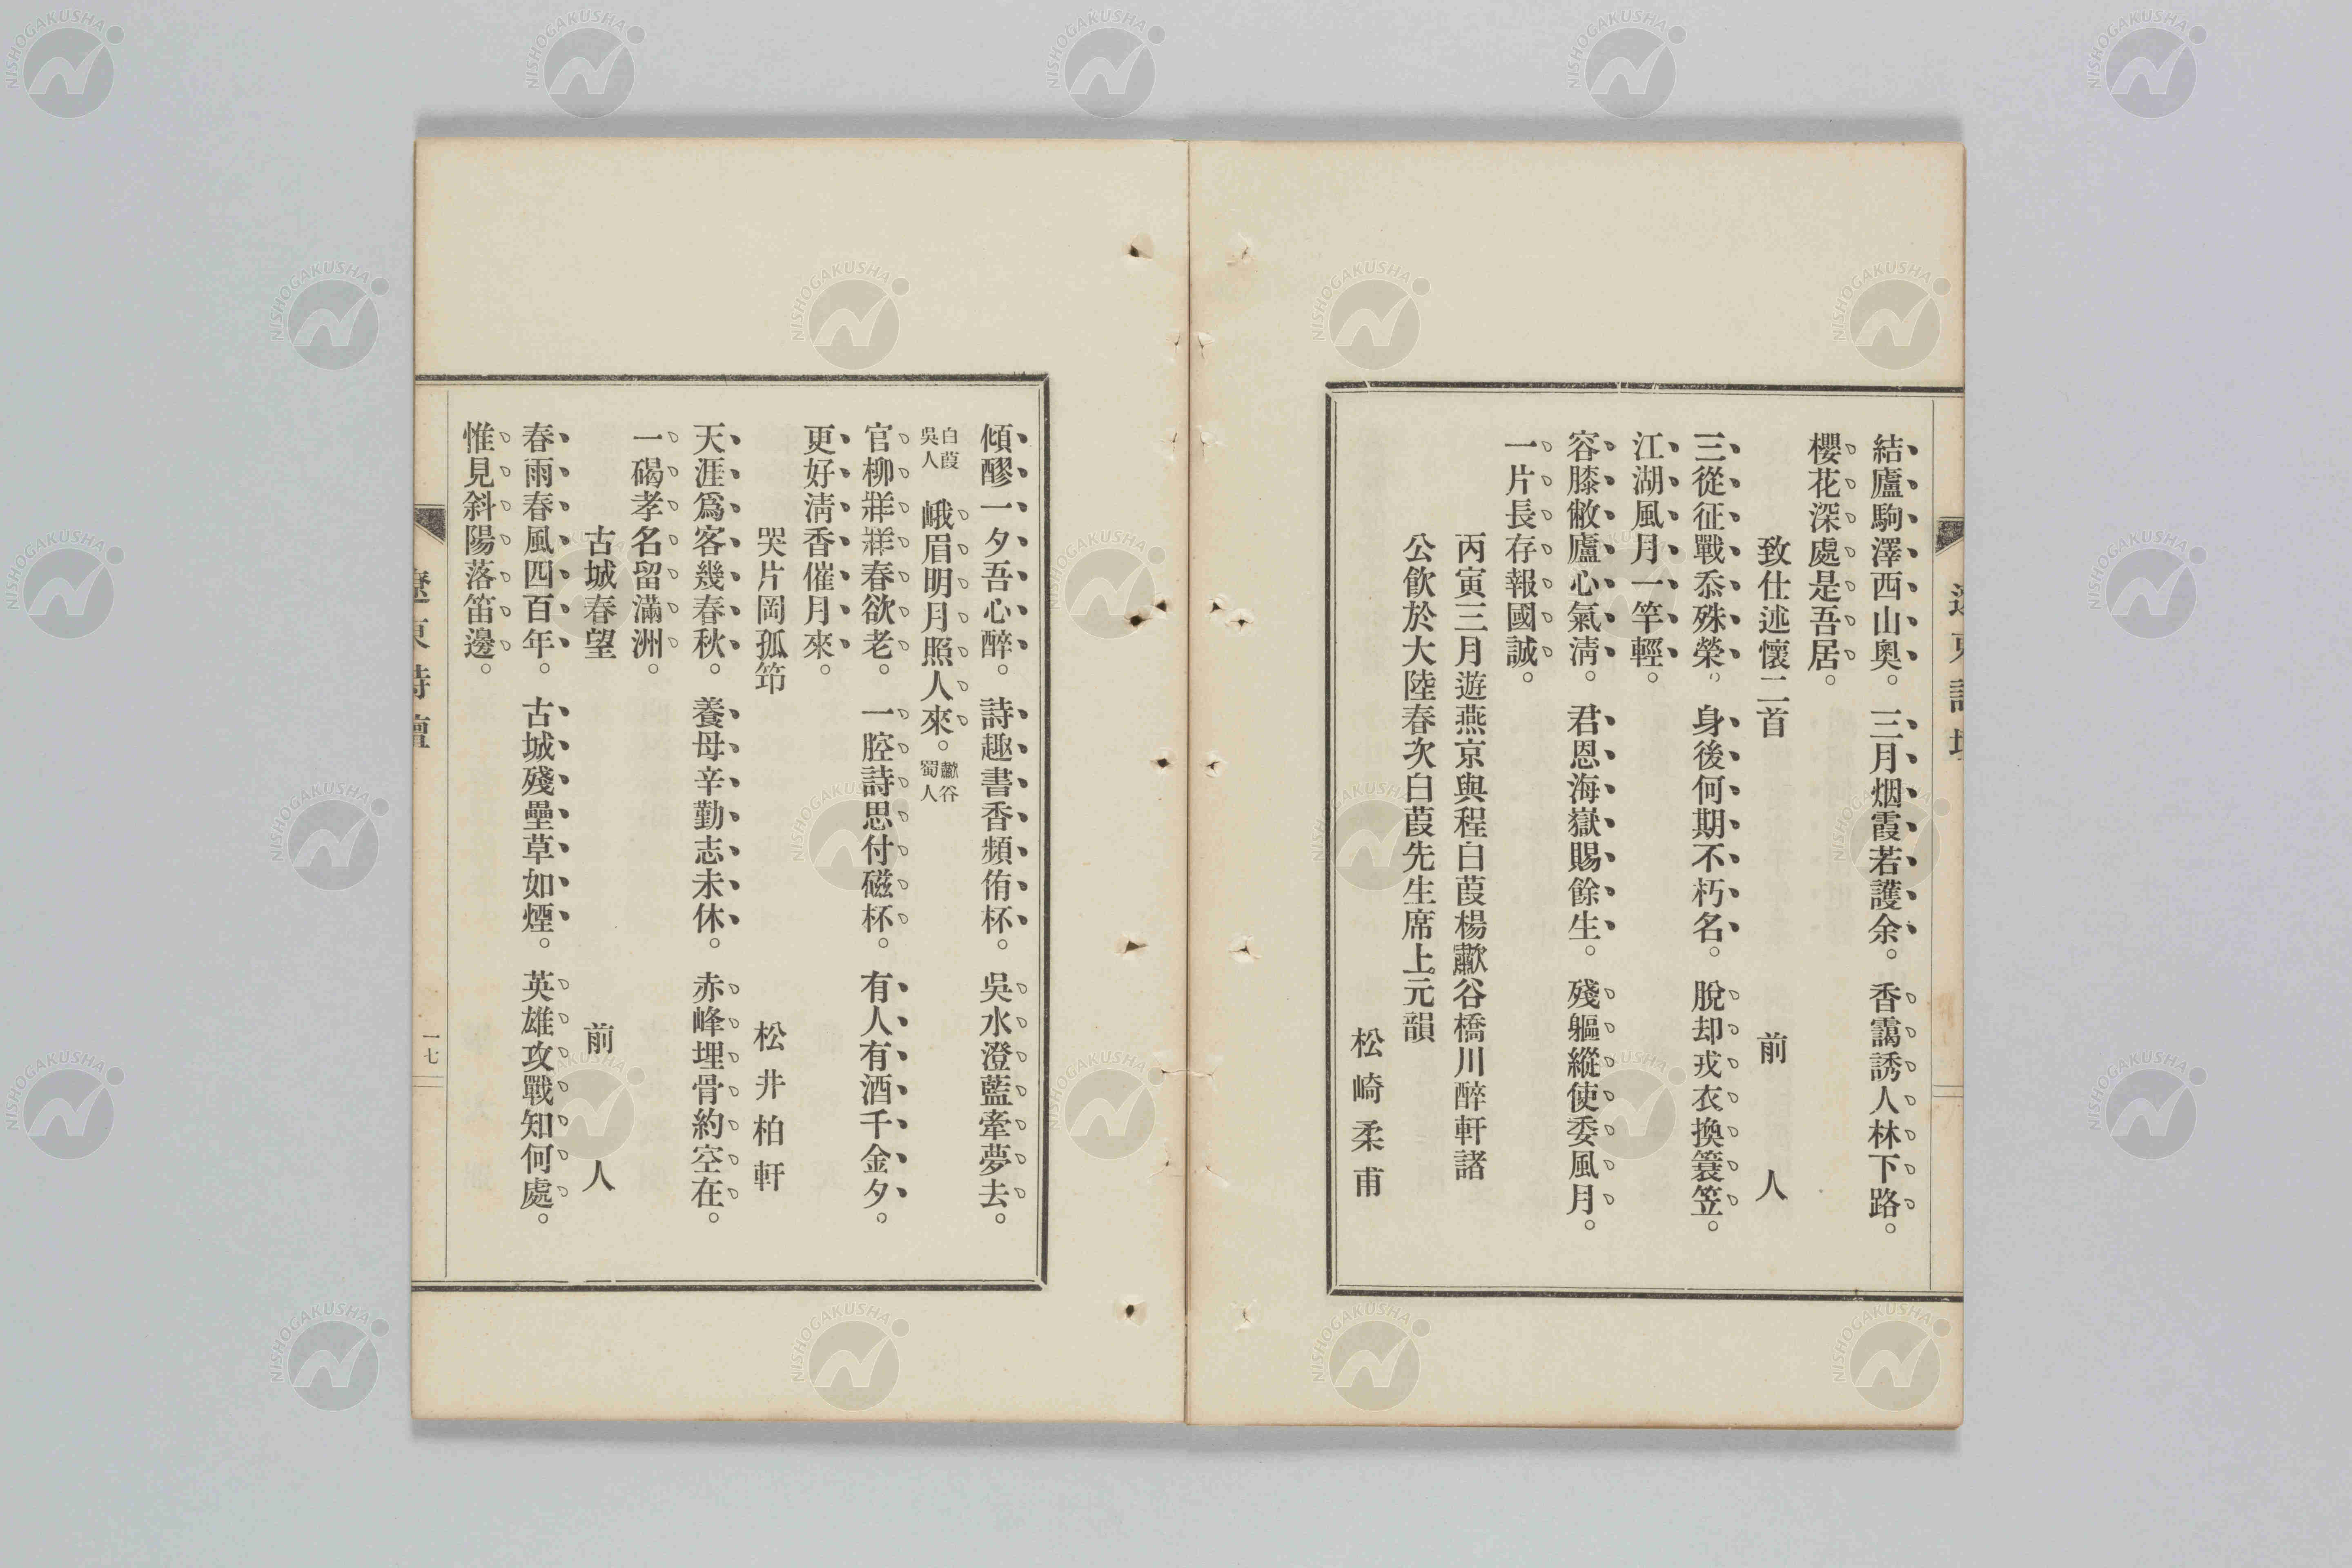 結廬駒澤西山奧。三月烟霞若護余。香靄誘人林下路。
櫻花深處是吾居。
致仕述懷二首　前人
三從征戰忝殊榮。身後何期不朽名。脫却戎衣換簑笠。
江湖風月一竿輕。
容膝敝廬心氣淸。君恩海嶽賜餘生。殘軀縱使委風月。
一片長存報國誠。
丙寅三月遊燕京與程白葭楊歗谷橋川醉軒諸
公飮於大陸春次白葭先生席上元韻
松崎柔甫
傾醪一夕吾心醉。詩趣書香頻侑杯。吳水澄藍牽夢去。
白葭吳人　峨眉明月照人來。歗谷蜀人
官柳牂牂春欲老。一腔詩思付磁杯。有人有酒千金夕。
更好淸香催月來。
哭片岡孤筇　松井柏軒
天涯爲客幾春秋。養母辛勤志未休。赤峰埋骨約空在。
一碣孝名留滿洲。
古城春望　前人
春雨春風四百年。古城殘壘草如煙。英雄攻戰知何處。
惟見斜陽落笛邊。
遼東詩壇
一七
NISHOGAKUSHA